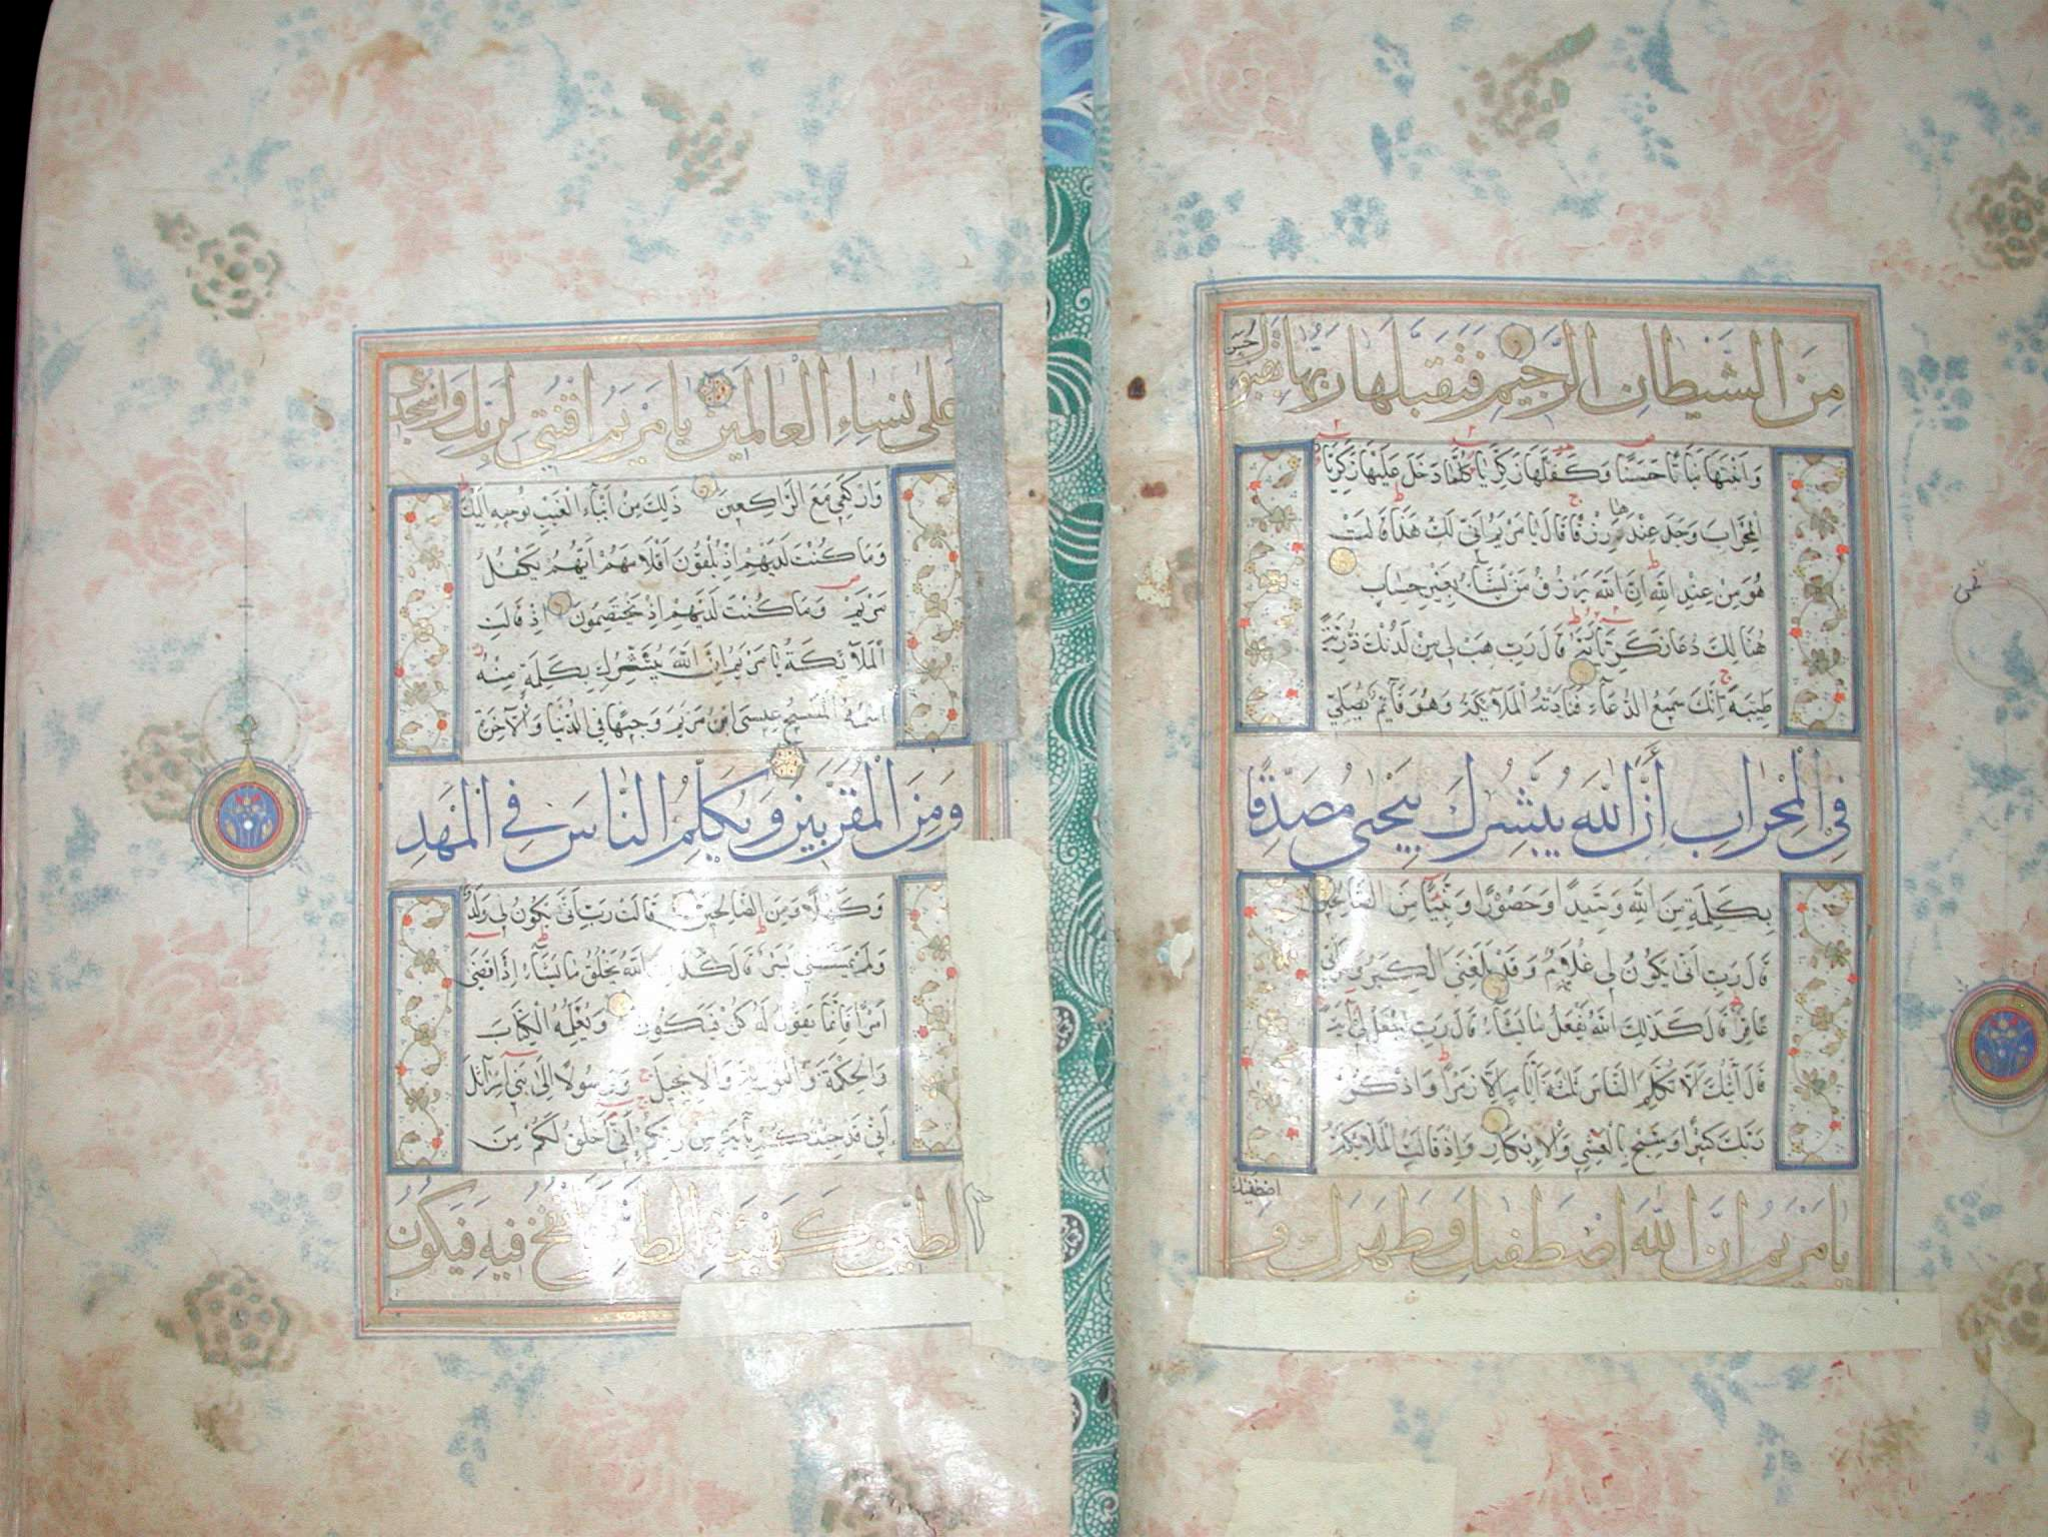 مِنَ الشَّيْطَانِ الرَّجِيمِ فَتَقَبَّلَهَا رَبُّهَا بِقَبُولٍ
حَسَنٍ
وَاَنْبَتَهَا نَبَاتًا حَسَنًا وَكَفَّلَهَا زَكَرِيَّا كُلَّمَا دَخَلَ عَلَيْهَا زَكَرِيَّا
الْمِحْرَابَ وَجَدَ عِنْدَهَا رِزْقًا قَالَ يَا مَرْيَمُ اَنّٰى لَكِ هَذَا قَالَتْ
هُوَ مِنْ عِنْدِ اللّٰهِ اِنَّ اللّٰهَ يَرْزُقُ مَنْ يَشَآءُ بِغَيْرِ حِسَابٍ
هُنَالِكَ دَعَا زَكَرِيَّا رَبَّهُ قَالَ رَبِّ هَبْ لِي مِنْ لَدُنْكَ ذُرِّيَّةً
طَيِّبَةً اِنَّكَ سَمِيعُ الدُّعَآءِ فَنَادَتْهُ الْمَلَآئِكَةُ وَهُوَ قَآئِمٌ يُصَلِّي
فِي الْمِحْرَابِ أَنَّ اللّٰهَ يُبَشِّرُكَ بِيَحْيٰى مُصَدِّقًا
بِكَلِمَةٍ مِنَ اللّٰهِ وَسَيِّدًا وَحَصُورًا وَنَبِيًّا مِنَ الصَّالِحِينَ
قَالَ رَبِّ اَنّٰى يَكُونُ لِي غُلَامٌ وَقَدْ بَلَغَنِيَ الْكِبَرُ وَامْرَاَتِي
عَاقِرٌ قَالَ كَذَلِكَ اللّٰهُ يَفْعَلُ مَا يَشَآءُ قَالَ رَبِّ اجْعَلْ لِي آيَةً
قَالَ آيَتُكَ اَلَّا تُكَلِّمَ النَّاسَ ثَلٰثَةَ اَيَّامٍ اِلَّا رَمْزًا وَاذْكُرْ
رَبَّكَ كَثِيرًا وَسَبِّحْ بِالْعَشِيِّ وَالْاِبْكَارِ وَاِذْ قَالَتِ الْمَلَآئِكَةُ
يَا مَرْيَمُ اِنَّ اللّٰهَ اصْطَفٰيكِ وَطَهَّرَكِ وَ
اصْطَفٰيكِ
عَلٰى نِسَاءِ الْعَالَمِينَ يَا مَرْيَمُ اقْنُتِي لِرَبِّكِ وَاسْجُدِي
وَارْكَعِي مَعَ الرَّاكِعِينَ ذَلِكَ مِنْ اَنْبَآءِ الْغَيْبِ نُوحِيهِ اِلَيْكَ
وَمَا كُنْتَ لَدَيْهِمْ اِذْ يُلْقُونَ اَقْلَامَهُمْ اَيُّهُمْ يَكْفُلُ
مَرْيَمَ وَمَا كُنْتَ لَدَيْهِمْ اِذْ يَخْتَصِمُونَ اِذْ قَالَتِ
الْمَلَآئِكَةُ يَا مَرْيَمُ اِنَّ اللّٰهَ يُبَشِّرُكِ بِكَلِمَةٍ مِنْهُ
اسْمُهُ الْمَسِيحُ عِيسَى ابْنُ مَرْيَمَ وَجِيهًا فِي الدُّنْيَا وَالْآخِرَةِ
وَمِنَ الْمُقَرَّبِينَ وَيُكَلِّمُ النَّاسَ فِي الْمَهْدِ
وَكَهْلًا وَمِنَ الصَّالِحِينَ قَالَتْ رَبِّ اَنّٰى يَكُونُ لِي وَلَدٌ
وَلَمْ يَمْسَسْنِي بَشَرٌ قَالَ كَذَلِكِ اللّٰهُ يَخْلُقُ مَا يَشَآءُ اِذَا قَضٰى
اَمْرًا فَاِنَّمَا يَقُولُ لَهُ كُنْ فَيَكُونُ وَيُعَلِّمُهُ الْكِتَابَ
وَالْحِكْمَةَ وَالتَّوْرٰيةَ وَالْاِنْجِيلَ وَرَسُولًا اِلٰى بَنِي اِسْرَآئِلَ
اَنِّي قَدْ جِئْتُكُمْ بِآيَةٍ مِنْ رَبِّكُمْ اَنِّي اَخْلُقُ لَكُمْ مِنَ
الطِّينِ كَهَيْئَةِ الطَّيْرِ فَاَنْفُخُ فِيهِ فَيَكُونُ